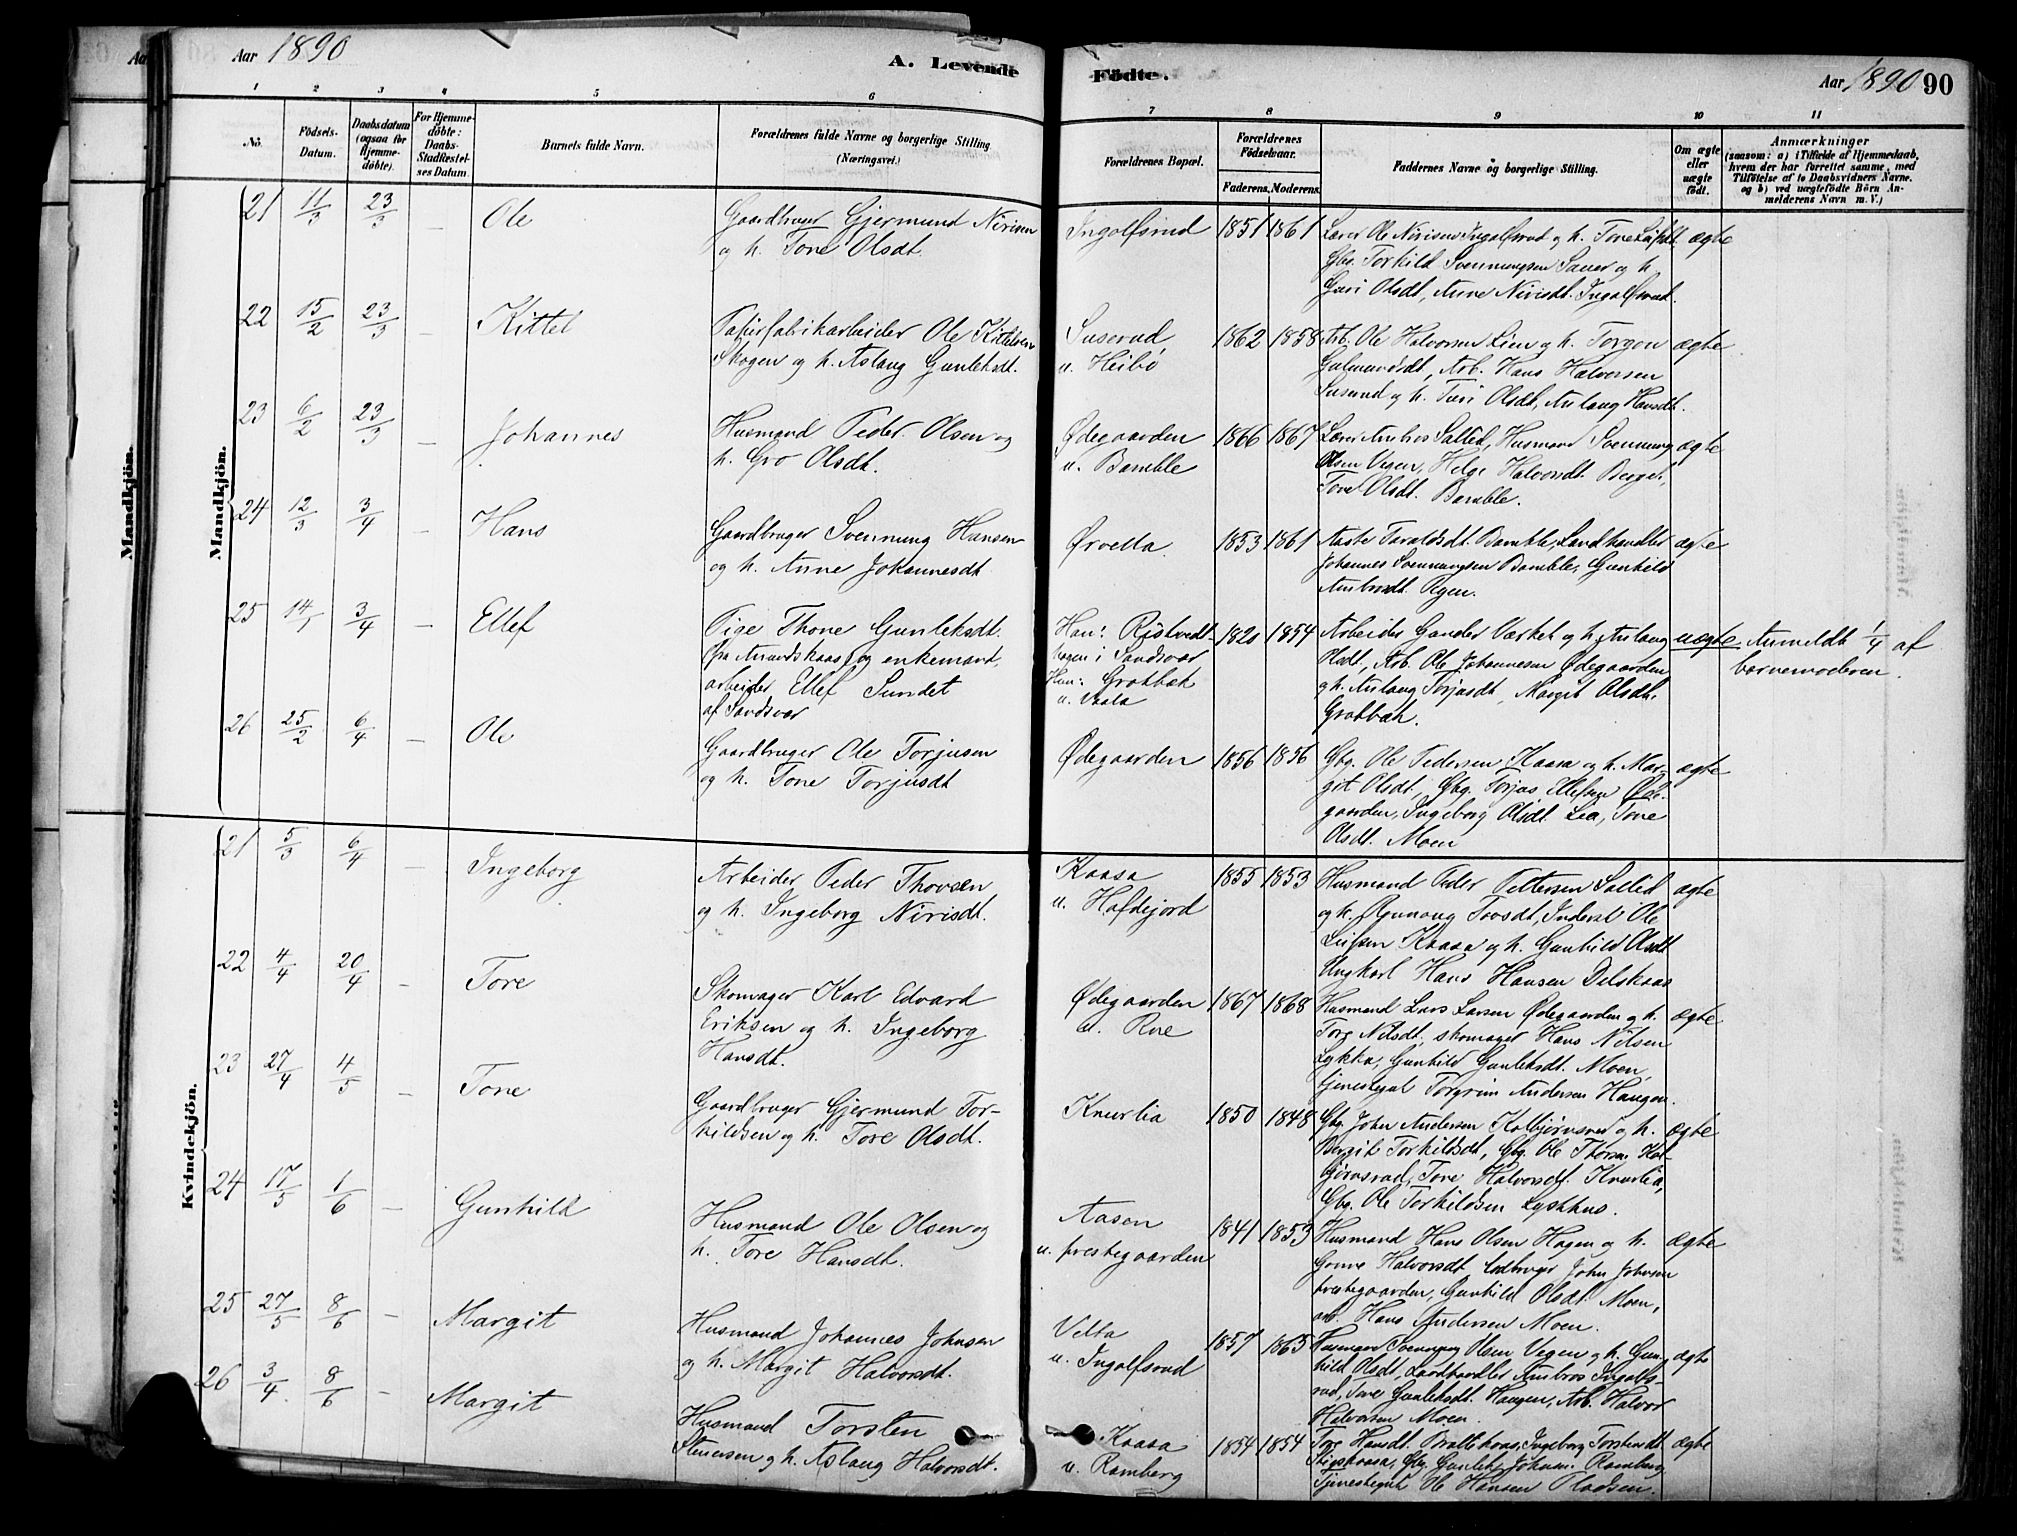 Aar 1890
A. Levende
Födte.
Aar 1890 90
1 2 3 4 5 6 7 8 9 10 11
No.
Födsels-
Datum.
Daabsdatum
(ogsaa for
Hjemme-
döbte).
For Hjemme-
döbte:
Daabs-
Stadfæstel-
ses Datum.
Barnets fulde Navn.
Forældrenes fulde Navne og borgerlige Stilling
(Næringsvei.)
Forældrenes Bopæl.
Forældrenes
Födselsaar.
Faderens. Moderens.
Faddernes Navne og borgerlige Stilling.
Om ægte
eller
uægte
födt.
Anmærkninger
(saasom: a) i Tilfælde af Hjemmedaab,
hvem der har forrettet samme, med
Tilföielse af to Daabsvidners Navne.
og b) ved uægtefödte Börn An-
melderens Navn m. V.)
Mandkjön.
Mandkjön.
21 11/3 23/3 – Ole
Gaardbruger Gjermund Nirisen
og h. Tone Olsdt.
Ingolfsrud 1851 1861
Lærer Ole Nirisen Ingolfsrud og h. Tone ægte
Gbg. Torkild Svenningsen Sauer og h.
Guri Olsdt, Anne Nirisdt. Ingolfsrud.
22 15/2 23/3 – Kittel
Papirfabrikarbeider Ole Kittelsen
Skogen og h. Aslaug Gunleksdt.
Suserud
u. Heibö
1862 1858
Arb. Ole Halvorsen Lien og h. Torgon ægte
Gulmundsdt, Arb. Hans Halvorsen
Suserud og h. Turi Olsdt, Aslaug Hansdt.
23 6/2 23/3 – Johannes
Husmand Peder Olsen og
h. Gro Olsdt.
Ødegaarden
u. Bamble
1866 1867
Lærer Ambros Salted, Husmand Svennung ægte
Olsen Vegen, Helge Halvorsdt. Berget,
Tone Olsdt. Bamble.
24 12/3 3/4 – Hans
Gaardbruger Svennung Hansen
og h. Anne Johannesdt
Ørvella 1853 1861
Aaste Taraldsdt. Bamble, Landhandler ægte
Johannes Svennungsen Bamble, Gunhild
Ambrosdt Rgen.
25 14/1 3/4 – Ellef
Pige Thone Gunleksdt.
fra Amundskaas og enkemand,
arbeider Ellef Sundet
af Sandsvær
Han: Ristvedt-
hagen i Sandsvær
Hun: Grotbæk
u. Vaala
1820 1854
Arbeider Gunder Værket og h. Aslaug uægte
Olsdt, Arb. Ole Johannesen Ødegaarden
og h. Aslaug Torjusdt, Margit Olsdt.
Grotbæk.
Anmeldt 1/4 af
barnemoderen.
26 25/2 6/4 – Ole
Gaardbruger Ole Torjusen
og h. Tone Torjusdt
Ødegaarden 1856 1856
Gbg. Ole Pedersen Kaasa og h. Mar- ægte
git Olsdt, Gbg. Torjus Ellefsen Øde-
gaarden, Ingeborg Olsdt. Lia, Tone
Olsdt. Moen
Kvindekjön.
21 5/3 6/4 – Ingeborg
Arbeider Peder Thovsen
og h. Ingeborg Nirisdt.
Kaasa
u. Hafdejord
1855 1853
Husmand Peder Pettersen Salted ægte
og h. Rønnaug Tovsdt, Inderst Ole
Leifsen Kaasa og h. Gunhild Olsdt
Ungkarl Hans Hansen Delskaas
22 4/4 20/4 – Tore
Skomager Karl Edvard
Eriksen og h. Ingeborg
Hansdt.
Ødegaarden
u. Rue
1867 1868
Husmand Lars Larsen Ødegaarden og h. ægte
Tore Nilsdt, skomager Hans Nilsen
Lykka, Gunhild Gunleksdt. Moen,
tjenestegut Torgrim Andersen Haugen.
23 27/4 4/5 – Tone
Gaardbruger Gjermund Tor-
kildsen og h. Tore Olsdt.
Knurlia 1850 1848
Gbg. John Andersen Kolbjørnsrud og h. ægte
Bergit Torkildsdt, Gbg. Ole Thorsen Kol-
bjørnsrud, Tone Halvorsdt. Knurlia,
Gbg. Ole Torkildsen Lysthus.
24 17/5 1/6 – Gunhild
Husmand Ole Olsen og
h. Tore Hansdt.
Aasen
u. prestegaarden
1841 1853
Husmand Hans Olsen Hagen og h. ægte
Gonve Halvorsdt John Johnsen
prestegaarden, Gunhild Olsdt. Moen,
arb. Hans Andersen Moen.
25 27/5 8/6 – Margit
Husmand Johannes Johnsen
og h. Margit Halvorsdt.
Velta
u. Ingolfsrud
1857 1865
Husmand Svennung Olsen Vegen og h. Gun- ægte
hild Olsdt, Landhandler Ambros Ingolfs-
rud, Tone Gunleksdt. Haugen, Arb. Halvor
Halvorsen Moen.
26 3/4 8/6 – Margit
Husmand Torsten
Stenersen og h. Aslaug Halvorsdt.
Kaasa
u. Ramberg
1854 1854
Tore Hansdt. Brattekaas, Ingeborg Torstensdt ægte
Stigskaasa, Gbg. Gunlek Johnsen Ramberg
Tjenestegut Ole Hansen Pladsen.